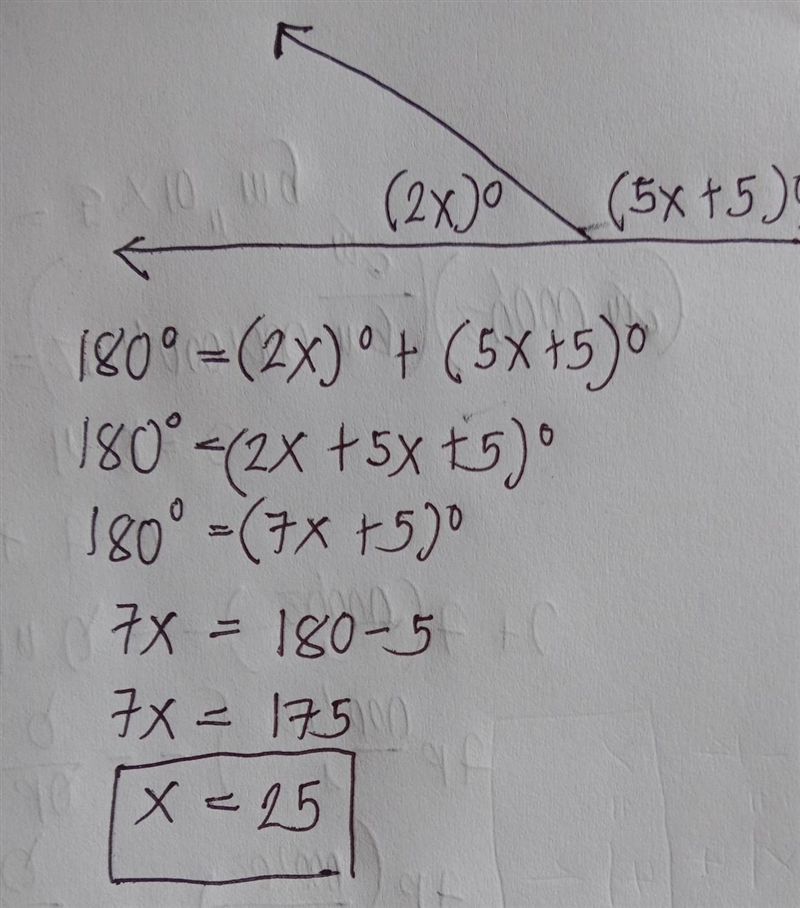 (2x)° (5x+5)°
180° = (2x)° + (5x+5)°
180° = (2x + 5x + 5)°
180° = (7x + 5)°
7x = 180 - 5
7x = 175
x = 25